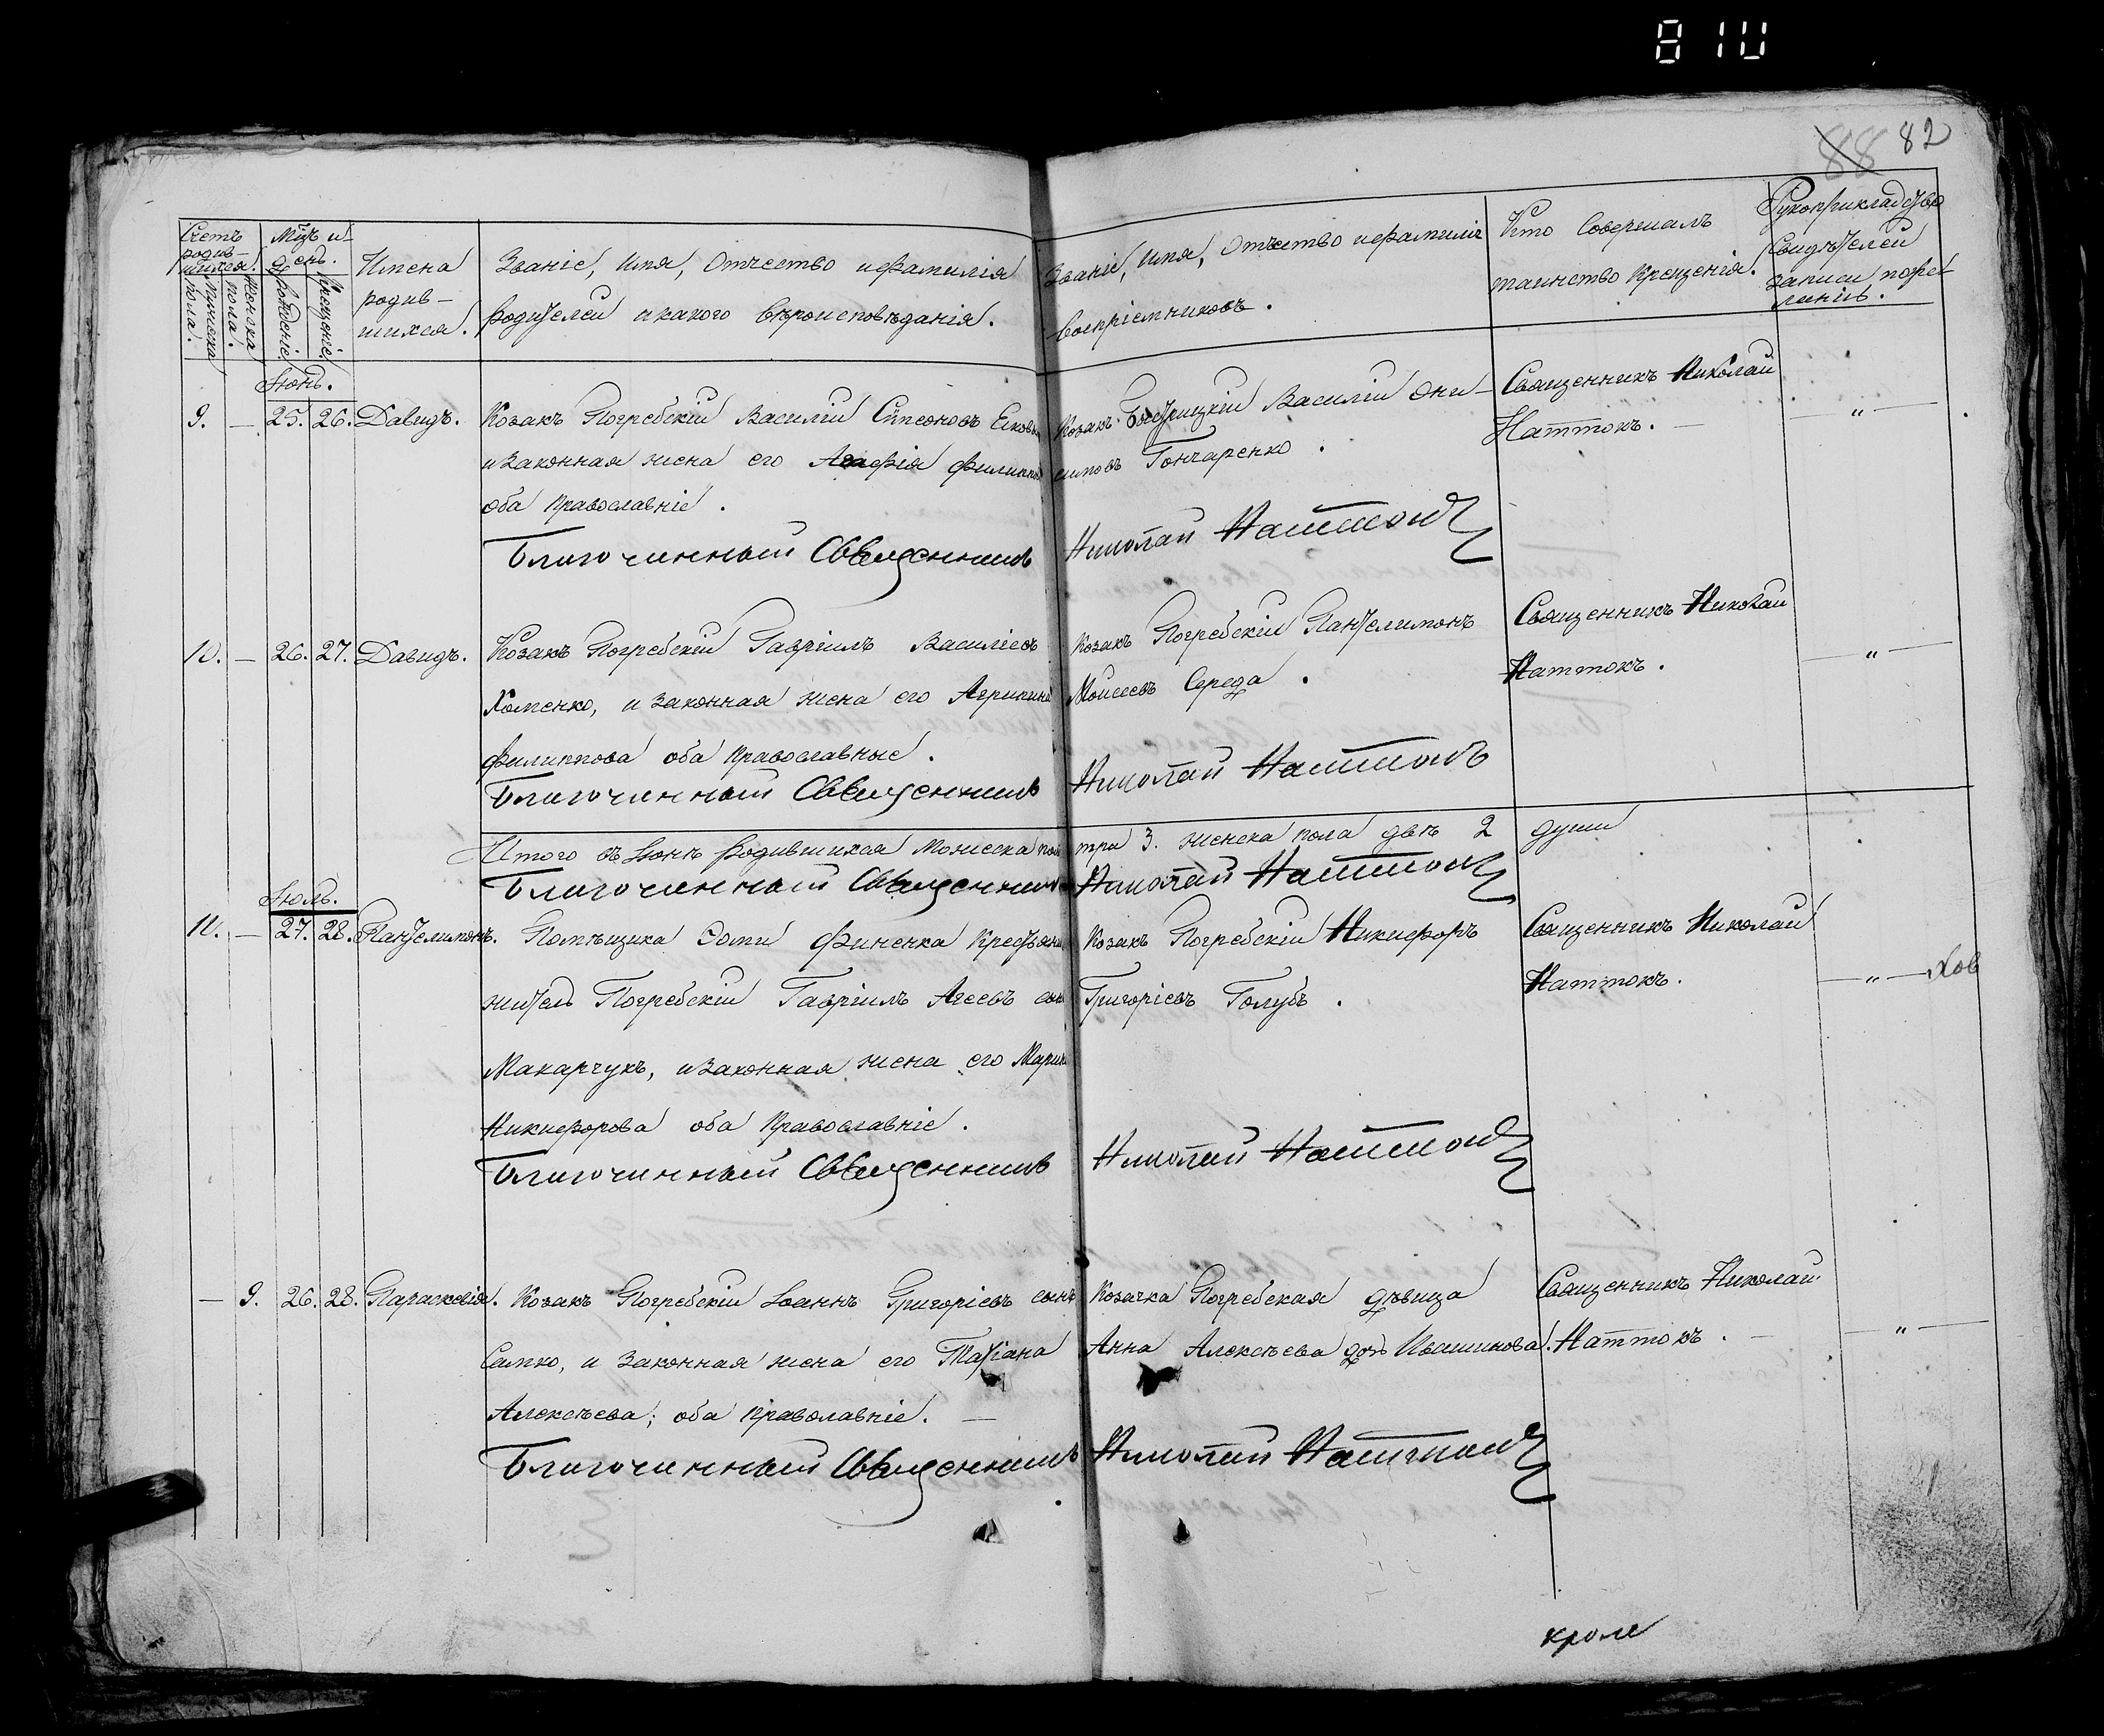 8 10
88 82
Счетъ родив-шихся.
Мужеска пола.
Женска пола.
Мцъ и день.
Рожденіе
Крещеніе
Имена родив-шихся.
Званіе, Имя, Отчество и фамилія
родителей и какого вѣроисповѣданія.
Званіе, имя, Отчество и фамилія
воспріемниковъ.
Кто Совершалъ
таинство Крещенія.
Рукоприкладство
Свидѣтелей
записи по же-
ланію.
Іюнь.
9. — 25. 26. Давидъ. Козакъ Погребскій Василій Симеоновъ
и законная жена его Агафія Филиппова
оба Православніе.
Козакъ Быстрицкій Василій Они-
симовъ Гончаренко.
Священникъ Николай
Наттокъ. —
— " —
Благочинный Священникъ Николай Наттокъ
10. — 26. 27. Давидъ. Козакъ Погребскій Гавріилъ Василіевъ
Хоменко, и законная жена его Агрипина
Филиппова оба Православные.
Козакъ Погребскій Пантелимонъ
Моисеевъ Середа.
Священникъ Николай
Наттокъ.
— " —
Благочинный Священникъ Николай Наттокъ
Итого въ Іюнѣ родившихся Мужеска пола три 3. женска пола двѣ 2 души
Благочинный Священникъ Николай Наттокъ
Іюль.
11. — 27. 28. Пантелимонъ. Помѣщика Финенка Крестьянинъ
житель Погребскій Гавріилъ Агеевъ сынъ
Макарчукъ, и законная жена его Марина
Никифорова оба Православніе.
Козакъ Погребскій Никифоръ
Григоріевъ Голубъ.
Священникъ Николай
Наттокъ.
— " —
Благочинный Священникъ Николай Наттокъ
— 9. 26. 28. Параскевія. Козакъ Погребскій Іоаннъ Григоріевъ сынъ
Сапко, и законная жена его Татіана
Алексѣева; оба Православніе. —
Козачка Погребская дѣвица
Анна Алексѣева дочь Ивашинова.
Священникъ Николай
Наттокъ. —
— " —
Благочинный Священникъ Николай Наттокъ